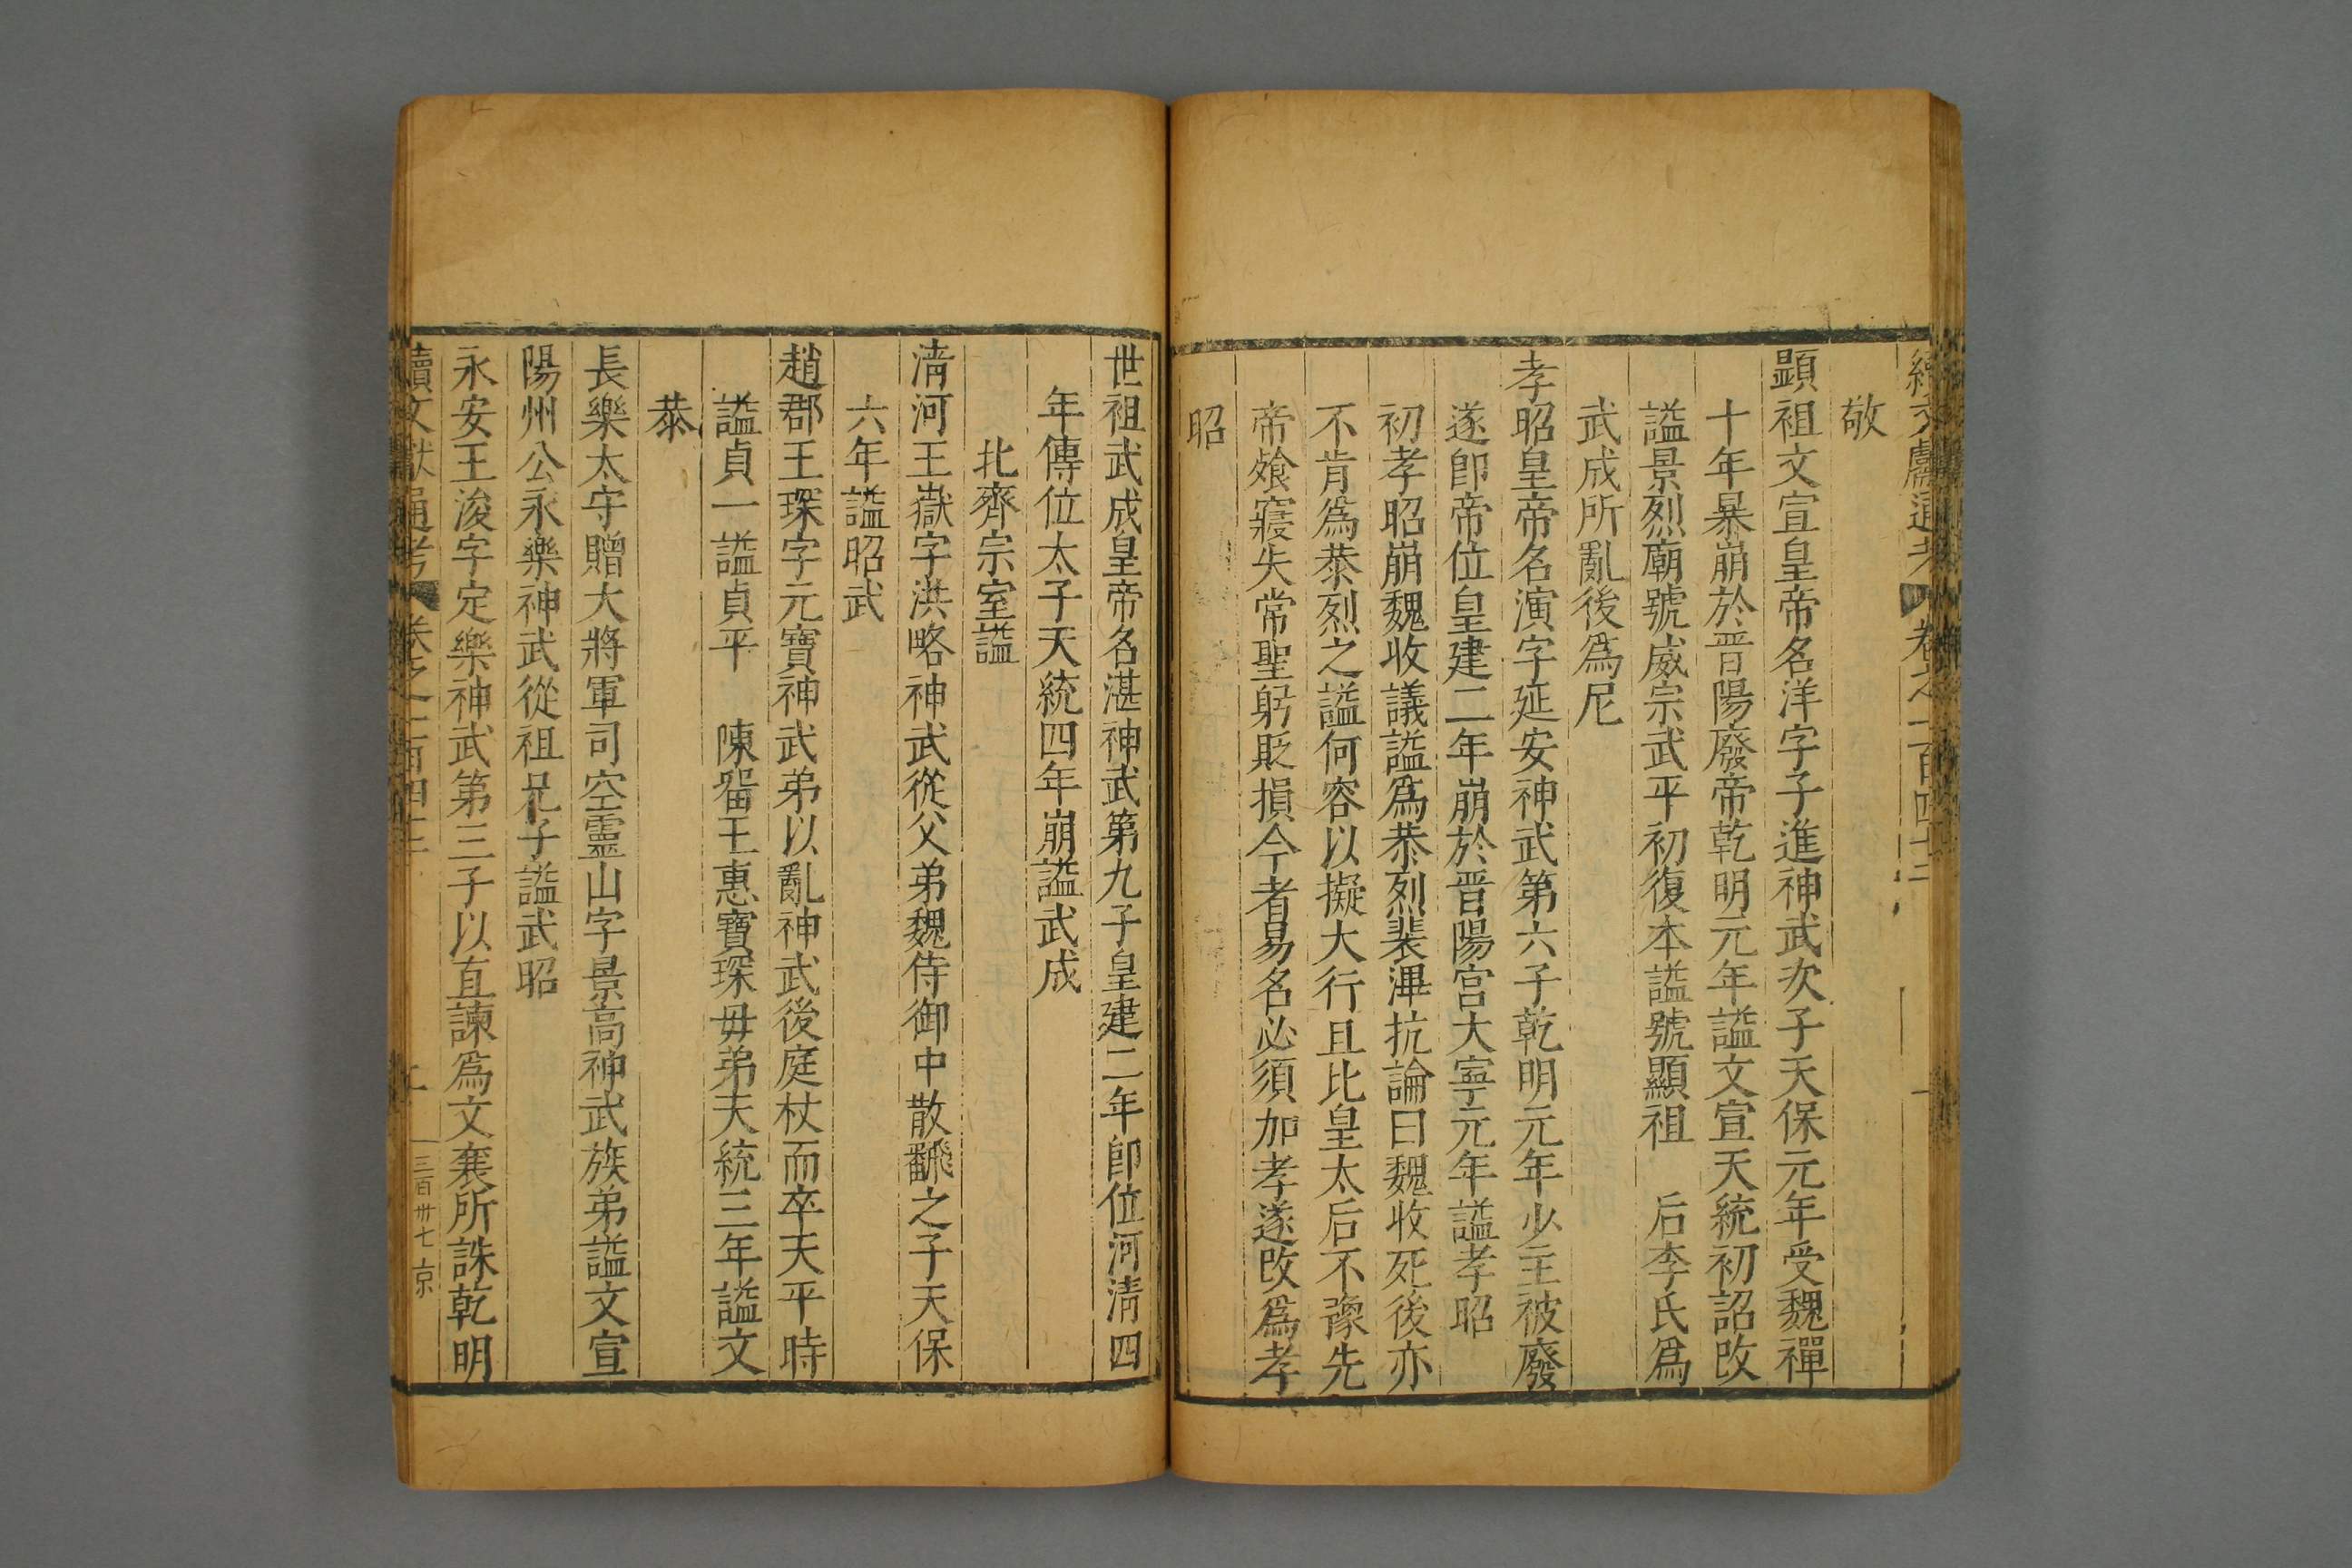 續文獻通考 卷之一百四十三
敬
顯祖文宣皇帝名洋字子進神武次子天保元年受魏禪
十年暴崩於晉陽廢帝乾明元年謚文宣天統初詔改
謚景烈廟號威宗武平初復本謚號顯祖 后李氏爲
武成所亂後爲尼
孝昭皇帝名演字延安神武第六子乾明元年少主被廢
遂卽帝位皇建二年崩於晋陽宫大寧元年謚孝昭
初孝昭崩魏收議謚爲恭烈裴澤抗論曰魏收死後亦
不肯爲恭烈之謚何容以擬大行且比皇太后不豫先
帝飱寢失常聖躬貶損今者易名必須加孝遂改爲孝
昭
世祖武成皇帝名湛神武第九子皇建二年卽位河清四
年傳位太子天統四年崩謚武成
北齊宗室謚
清河王嶽字洪略神武從父弟魏侍御中散飜之子天保
六年謚昭武
趙郡王琛字元寶神武弟以亂神武後庭杖而卒天平時
謚貞一謚貞平 陳畱王惠寶琛母弟天統三年謚文
恭
長樂太守贈大將軍司空靈山字景高神武族弟謚文宣
陽州公永樂神武從祖兄子謚武昭
永安王浚字定樂神武第三子以直諫爲文襄所誅乾明
續文獻通考 卷之一百四十三 三百卅七 京